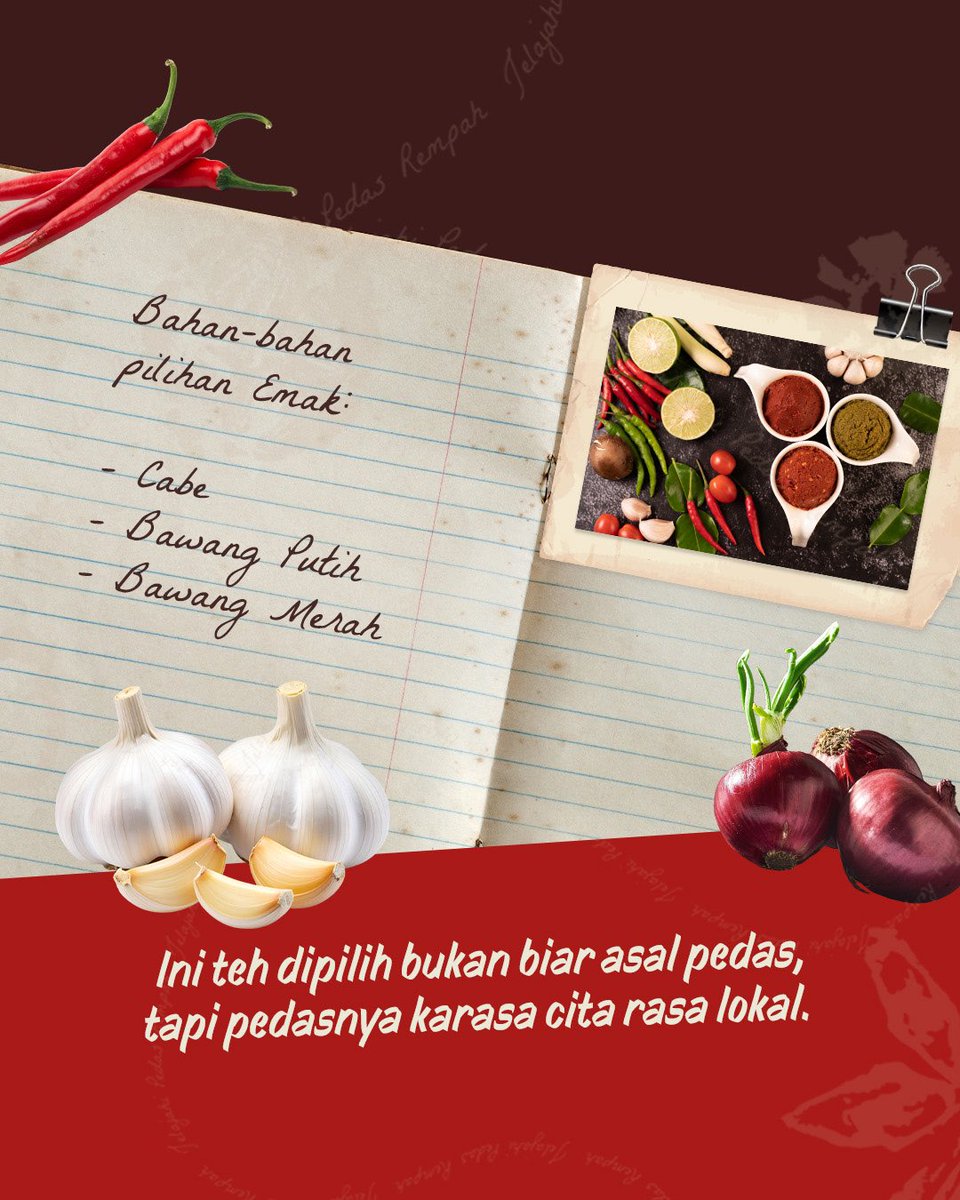 Jelajahi
Pedas Rempah
Bahan-bahan
pilihan Emak:
- Cabe
- Bawang Putih
- Bawang Merah
Ini teh dipilih bukan biar asal pedas,
tapi pedasnya karasa cita rasa lokal.
Jelajahi Pedas Rempah